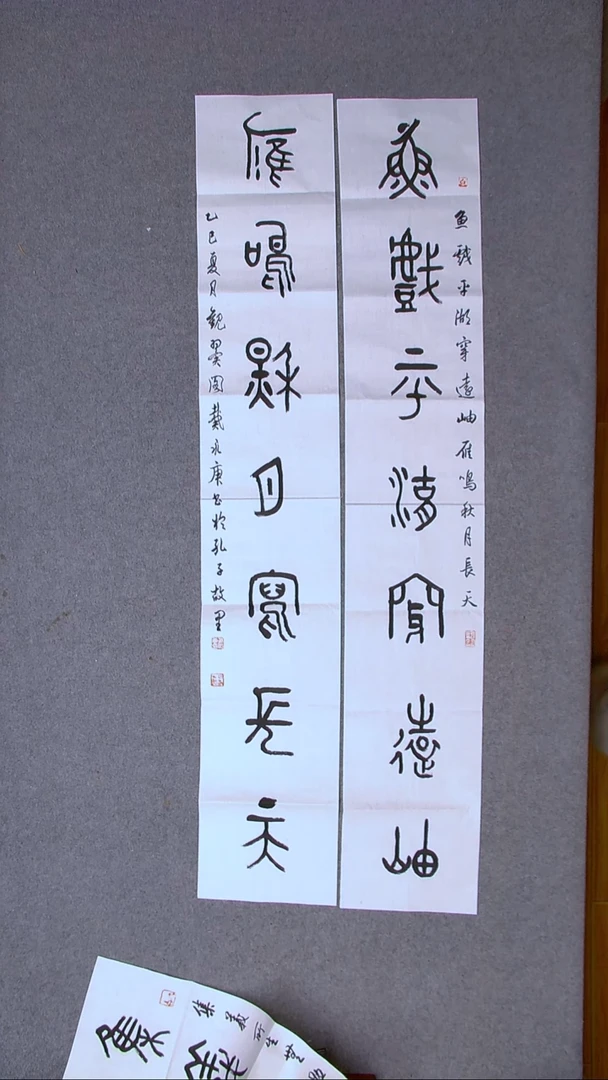 魚戲平湖穿遠岫
魚戲平湖穿遠岫雁鳴秋月長天
雁鳴秋月寫長天
乙巳夏月觀阁戴庚书於孔子故里
集義所生
集